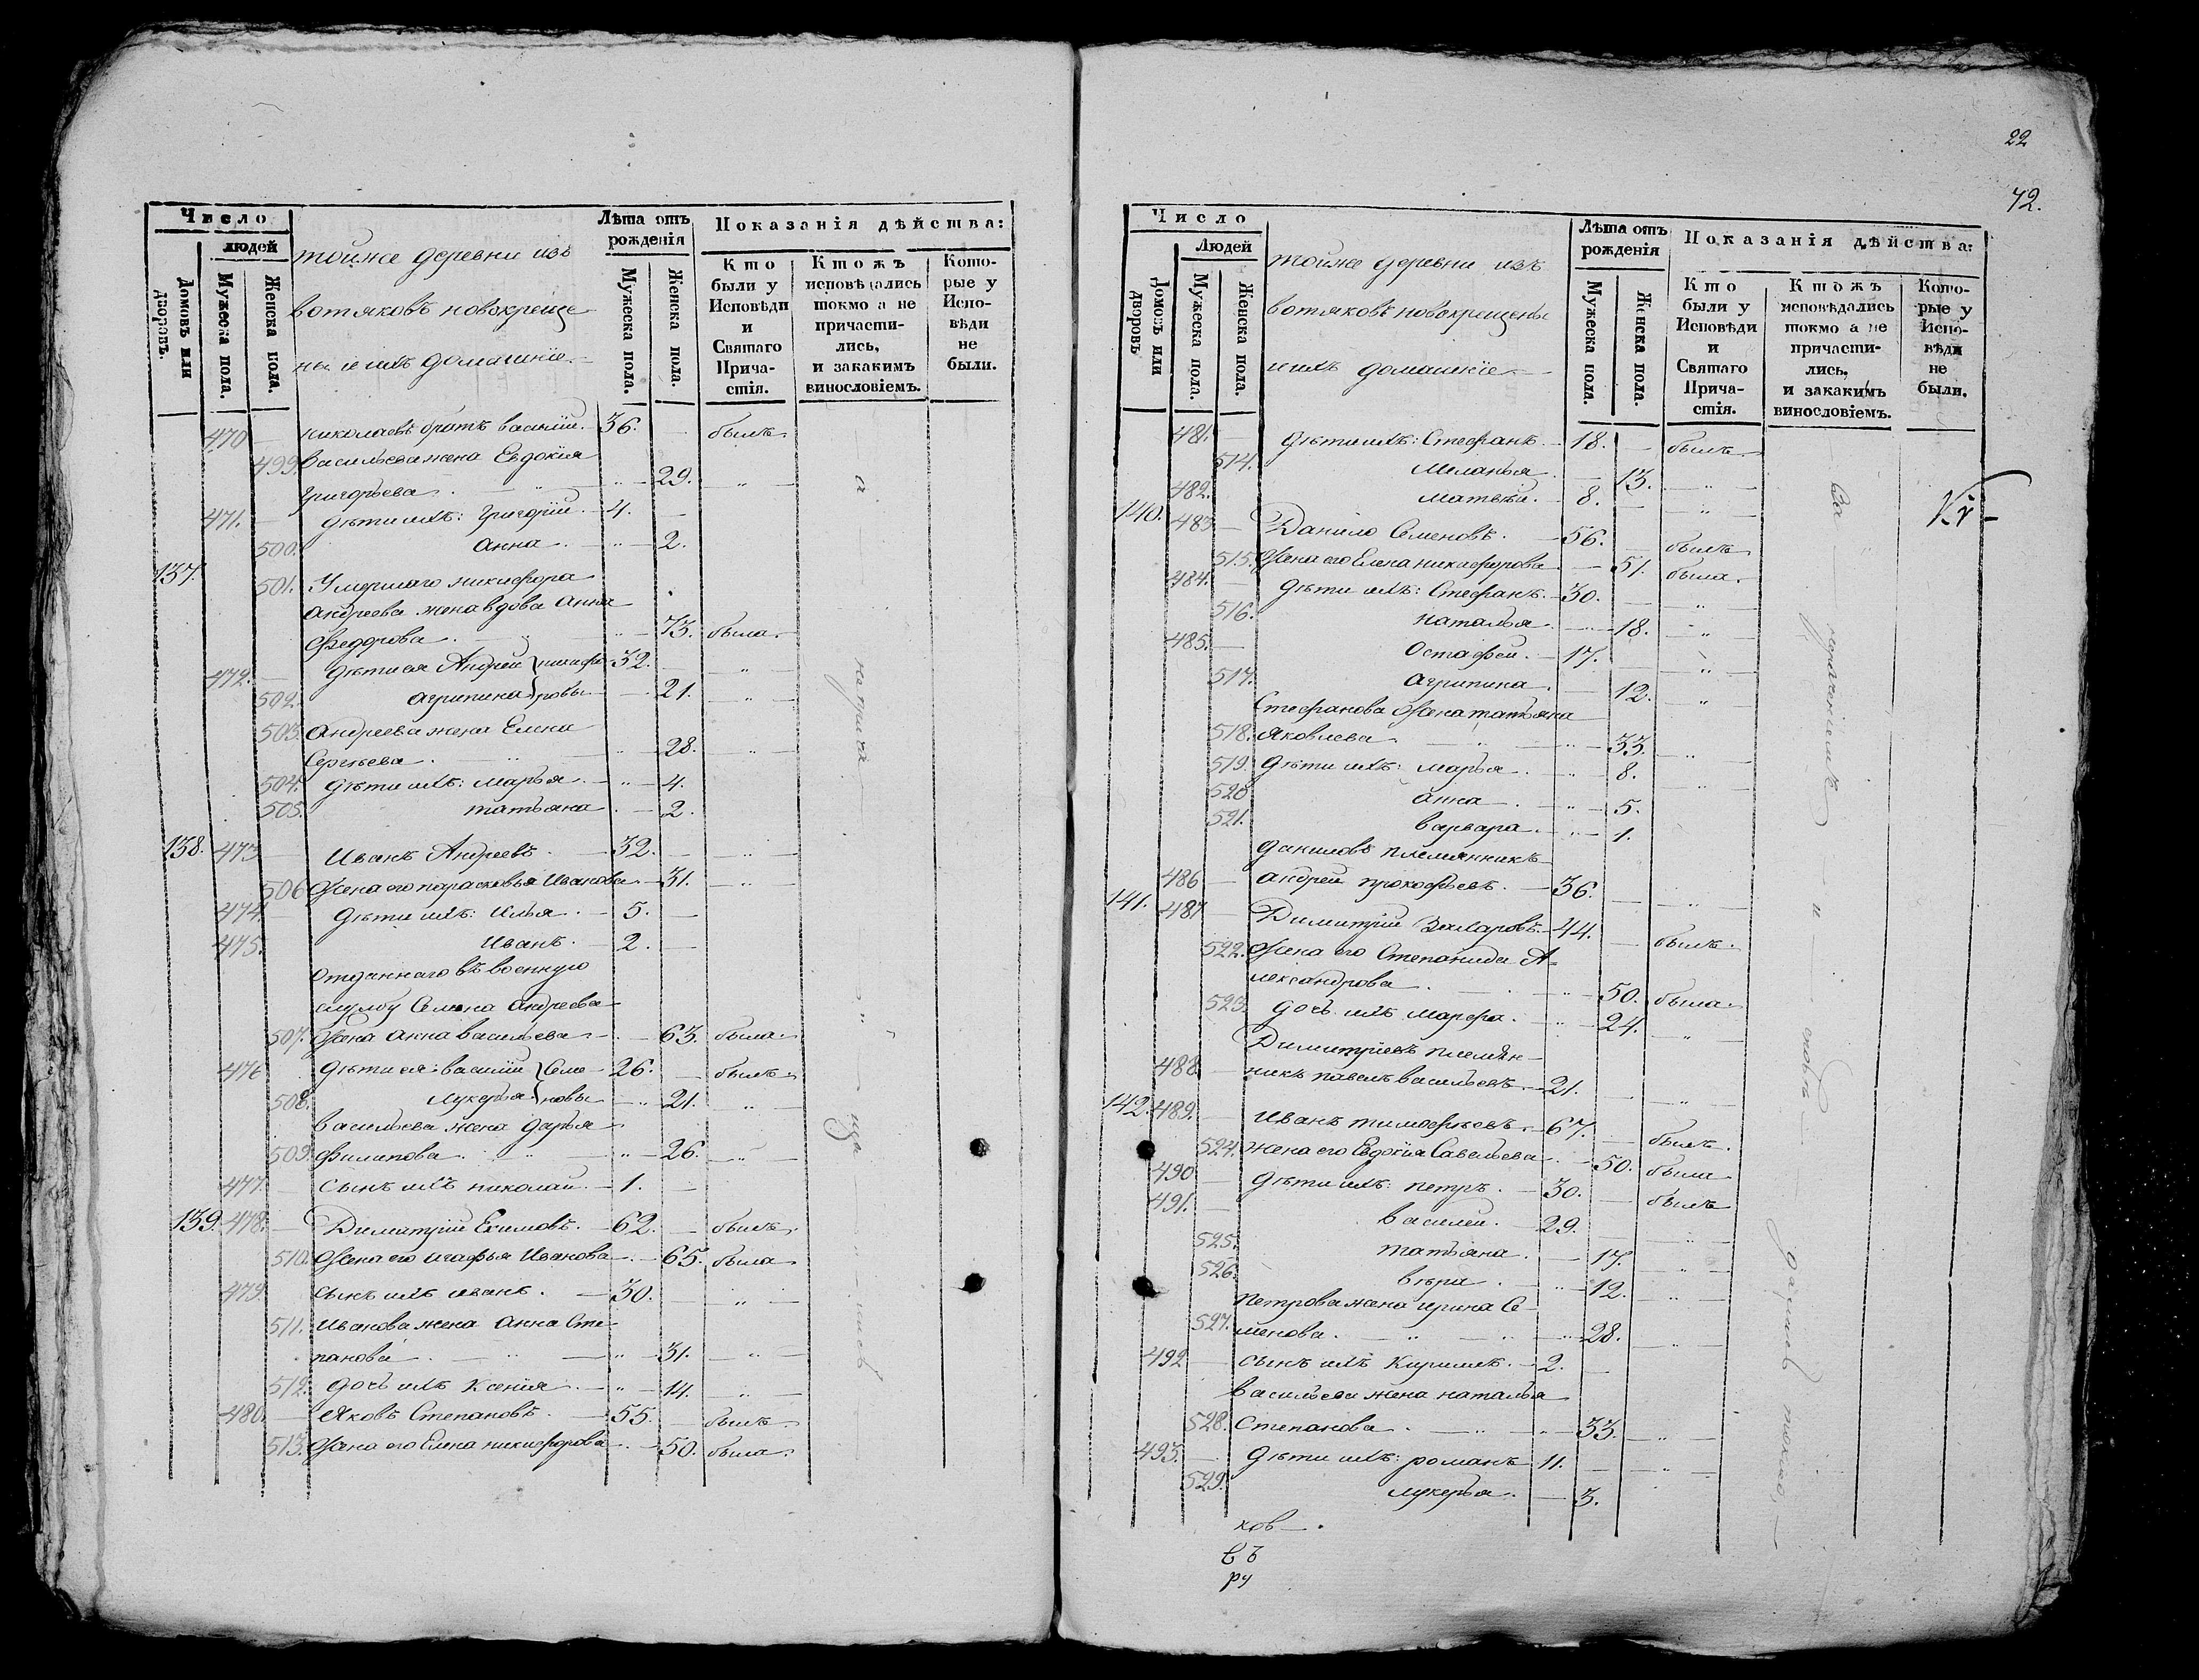 Число
людей
Домовъ или дворовъ.
Мужеска пола.
Женска пола.
тойже деревни изъ
вотяковъ новокреще
ны и ихъ домашніе
Лѣта отъ рожденія
Мужеска пола.
Женска пола.
Показанія дѣйства:
Кто были у Исповѣди и Святаго Причастія.
Ктожъ исповѣдались токмо а не причастились, и закакимъ винословіемъ.
Которые у Исповѣди не были.
470 — николаевъ братъ василій. — 36. — былъ.
499. Васильева жена Евдокія
Григорьева. — 29. — „ —
471. — дѣти ихъ: Григорій. — 4. —
500. Анна. — „ — 2.
137. 501. Умершаго никифора
андреева жена вдова Анна
Федорова. — „ — 73. была.
472. — дѣти ея Андрей } никифо 32. — „ —
502. агрипина } ровы — 21. — „ —
503. андреева жена Елена
Сергѣева. — „ — 28. — „ —
504. дѣти ихъ: марья. — „ — 4.
505. татьяна. — 2.
138. 473 — Иванъ Андреевъ. — 32. — „ —
506 Жена его парасковья Иванова — 31. — „ —
474. — дѣти ихъ: Илья. — 5. —
475. Иванъ. — 2. —
отданнаго въ военную
службу Семена андреева
507. Жена анна васильева — 63. была.
476 дѣти ея: василій } Семе — 26. — былъ.
508. лукерья } новы — „ 21. — „ —
васильева жена дарья
509. филипова. — „ — 26. — „ —
477. — сынъ ихъ николай. — 1. —
139. 478. — Димитрій Екимовъ. — 62. — былъ.
510. Жена его агафья Иванова. — 65. была.
479. сынъ ихъ иванъ. — 30. — „ —
511. Иванова жена анна Сте-
панова. — „ — 31. — „ —
512. дочь ихъ Ксенія. — „ — 14. — „ —
480. — Яковъ Степановъ. — 55. — былъ.
513. Жена его Елена никифорова. — 50. была.
22
42.
Число
Людей
Домовъ или дворовъ
Мужеска пола.
Женска пола.
тойже деревни изъ
вотяковъ новокрещены
и ихъ домашніе
Лѣта отъ рожденія
Мужеска пола.
Женска пола.
Показанія дѣйства:
Кто были у Исповѣди и Святаго Причастія.
Ктожъ исповѣдались токмо а не причастились, и закакимъ винословіемъ.
Которые у Исповѣди не были.
481. — дѣти ихъ: Стефанъ. — 18. — былъ
514. Меланья. — 13. — „ —
482. матвѣй. — 8. — „ —
140. 483 — Данило Семеновъ. — 56. — былъ
515. Жена его Елена никифорова — 51. была.
484. — дѣти ихъ: Стефанъ. — 30. — „ —
516. наталья. — 18. — „ —
485. — Остафей. — 17. — „ —
517. агрипина. — 12. — „ —
Стефанова Жена татьяна
518. Яковлева. — „ — 33. — „ —
519. дѣти ихъ: марья. — „ — 8. — „ —
520 анна. — „ — 5.
521. варвара. — „ — 1.
даниловъ племянникъ
486 — андрей прокофьевъ. — 36. — „ —
141. 487 — Димитрій Захаровъ. — 44. — былъ.
522. Жена его Степанида А-
лександрова. — „ — 50. была.
523. дочь ихъ марфа. — „ — 24. — „ —
Димитріевъ племян-
488. — никъ павелъ васильевъ. — 21. — „ —
142. 489. — Иванъ тимофеевъ. — 67. — былъ.
524. жена его Евдокія Савельева. — 50. была
490 — дѣти ихъ: петръ. — 30. — былъ
491. — василей. — 29. — „ —
525. татьяна. — 17. — „ —
526. вѣра. — „ — 12. — „ —
петрова жена ирина Се-
527. менова. — „ — 28. — „ —
492 — сынъ ихъ Кирилъ. — 2. —
васильева жена наталья
528. Степанова. — „ — 33. — „ —
493. — дѣти ихъ: романъ — 11. — „ —
529. лукерья. — 3.
ков —.
съ
ру